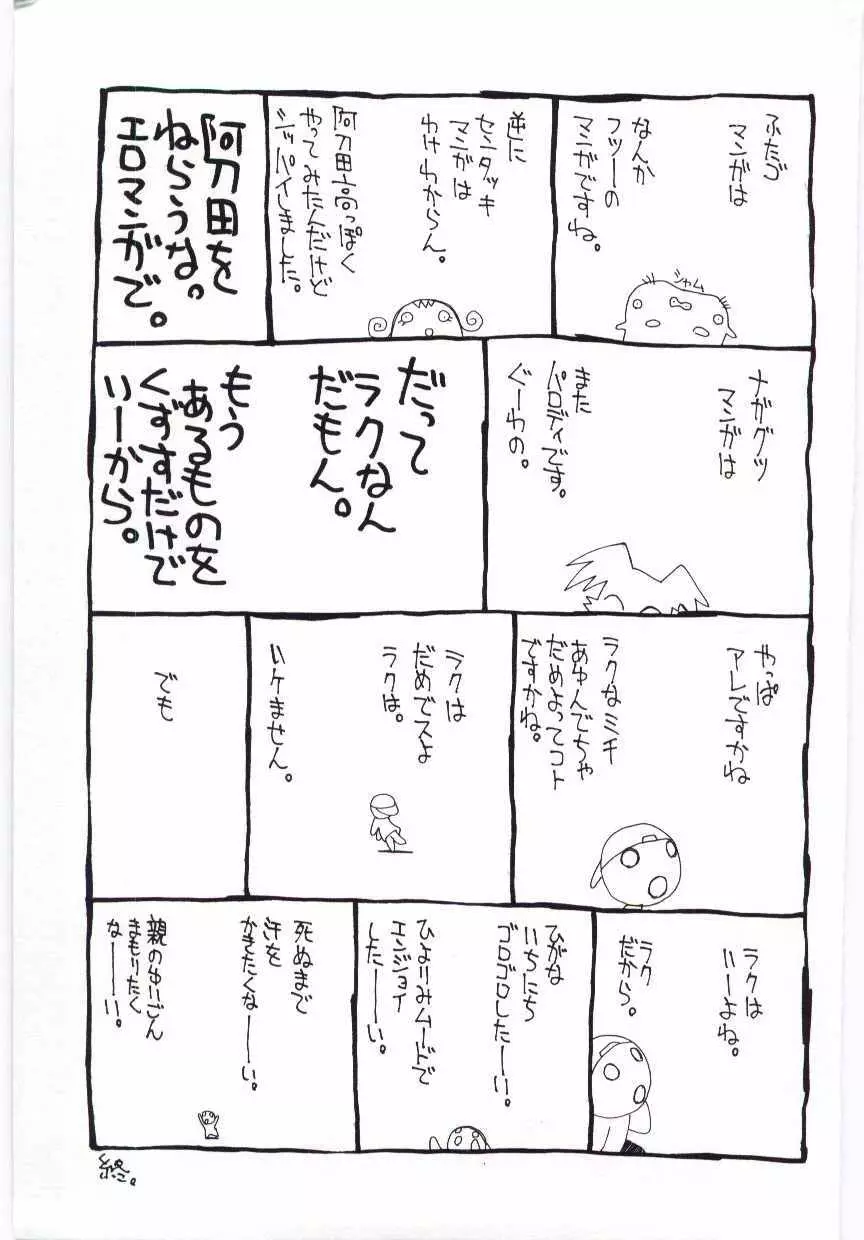 ふたご
マンガは
なんか
フツーの
マンガですね。
シャム
逆に
センタッキ
マンガは
わけわからん。
阿刀田高っぽく
やってみたんだけど
シッパイしました。
阿刀田を
ねらうな。
エロマンガで。
ナガグツ
マンガは
また
パロディです。
ぐーわの。
だって
ラクなん
だもん。
もう
あるものを
くずすだけで
いーから。
やっぱ
アレですかね
ラクなミチ
あゆんでちゃ
だめよってコト
ですかね。
ラクは
だめでスよ
ラクは。
いケません。
でも
ラクは
いーよね。
ラク
だから。
ひがな
いちにち
ゴロゴロしたーい。
ひよりみムードで
エンジョイ
したーーい。
死ぬまで
汗を
かきたくなーーい。
親のゆいごん
まもりたく
なーーい。
終。